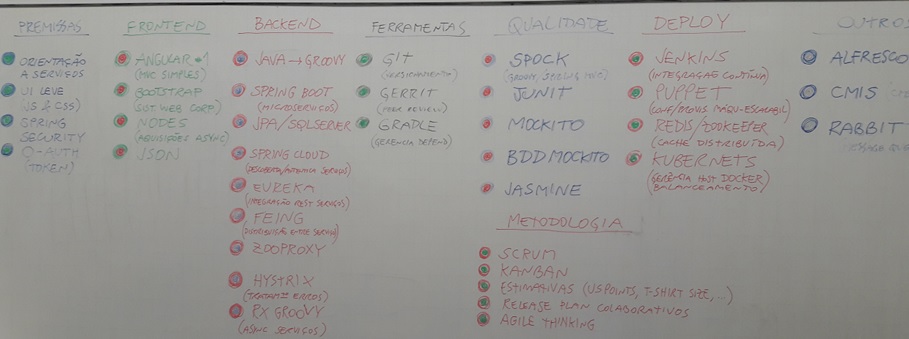 PREMISSAS
ORIENTAÇÃO
A SERVIÇOS
UI LEVE
(JS & CSS)
SPRING
SECURITY
O-AUTH
(TOKEN)
FRONTEND
ANGULAR *1
(MVC SIMPLES)
BOOTSTRAP
(SIST WEB CORP.)
NODES
(REQUISIÇÕES ASYNC)
JSON
BACKEND
JAVA → GROOVY
SPRING BOOT
(MICROSERVIÇOS)
JPA/SQLSERVER
SPRING CLOUD
EUREKA
(INTEGRAÇÃO REST SERVIÇOS)
FEING
ZOOPROXY
HYSTRIX
(TRATAM= ERROS)
RX GROOVY
(ASYNC SERVIÇOS)
FERRAMENTAS
GIT
(VERSIONAMENTO)
GERRIT
(PEER REVIEW)
GRADLE
(GERENCIA DEPEND)
QUALIDADE
SPOCK
JUNIT
MOCKITO
BDD MOCKITO
JASMINE
METODOLOGIA
SCRUM
KANBAN
ESTIMATIVAS (US POINTS, T-SHIRT SIZE,...)
RELEASE PLAN COLABORATIVOS
AGILE THINKING
DEPLOY
JENKINS
(INTEGRAÇÃO CONTINUA)
PUPPET
REDIS/ZOOKEEPER
(CACHE DISTRIBUIDA)
KUBERNETS
(GERÊNCIA HOST DOCKER
BALANCEAMENTO)
OUTROS
ALFRESCO
CMIS
RABBIT